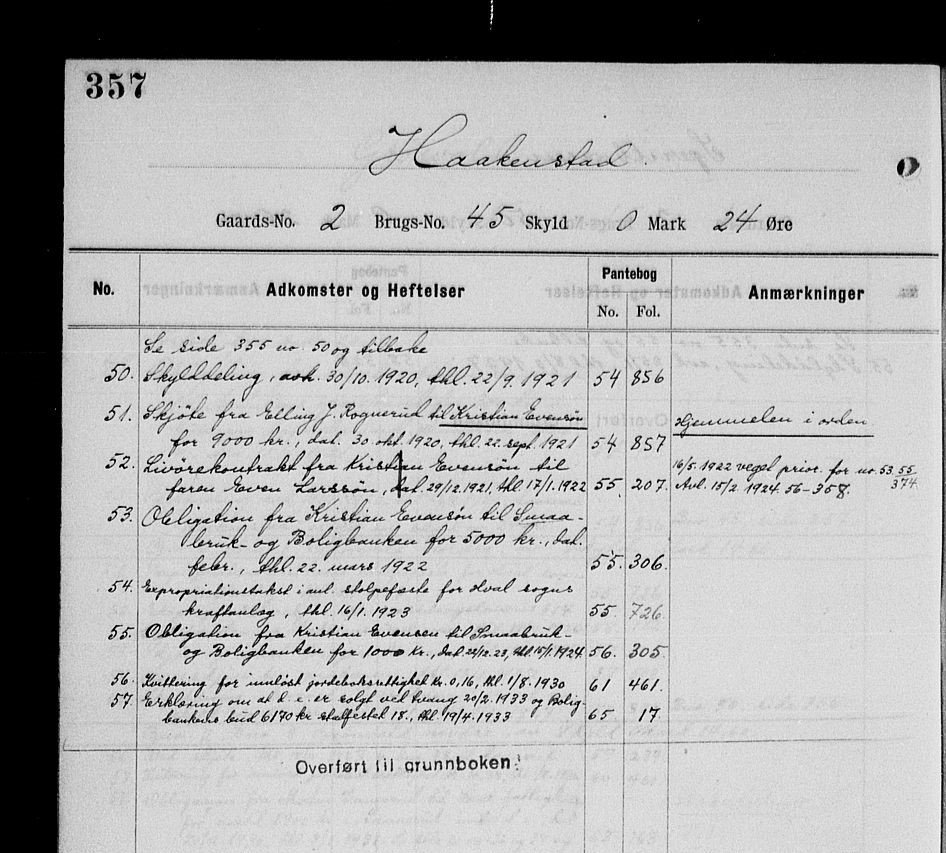 357
Haakenstad
Gaards-No. 2 Brugs-No. 45 Skyld 0 Mark 24 Øre
No. Adkomster og Heftelser Pantebog No. Fol. Anmærkninger
Se side 355 no 50 og tilbake
50. Skylddeling, avh. 30/10. 1920, thl. 22/9. 1921 54 856
51. Skjöte fra Elling J. Rognerud til Kristian Evensøn
for 9000 kr., dat. 30 okt. 1920, thl. 22. sept. 1921 54 857 Hjemmelen i orden
52. Livörekontrakt fra Kristian Evensøn til 16/5. 1922 veget prior. for no 53. 55/374.
faren Even Larssøn, dat. 29/12. 1921, thl. 17/1. 1922 55. 207. Avl. 15/2. 1924. 56-358.
53. Obligation fra Kristian Evensøn til Smaa-
bruk- og Boligbanken for 5000 kr., dat.
febr., thl. 22. mars 1922 55. 306.
54. Expropriationstakst i anl. stolpefæste for Hval sogns
kraftanlæg, thl. 16/1. 1923 55 726.
55. Obligation fra Kristian Evensen til Smaabruk-
og Boligbanken for 1000 kr., dat. 22/12. 23, thl. 15/1. 1924. 56. 305.
56. Kvittering for innløst jordeboksrettighet kr. 0,16, thl. 1/8. 1930 61 461.
57. Erklæring om at d. e. er solgt ved tvang 20/2. 1933 og Bolig-
bankens bud 6170 kr stadfestet 18., thl. 19/4. 1933 65 17.
Overført til grunnboken!